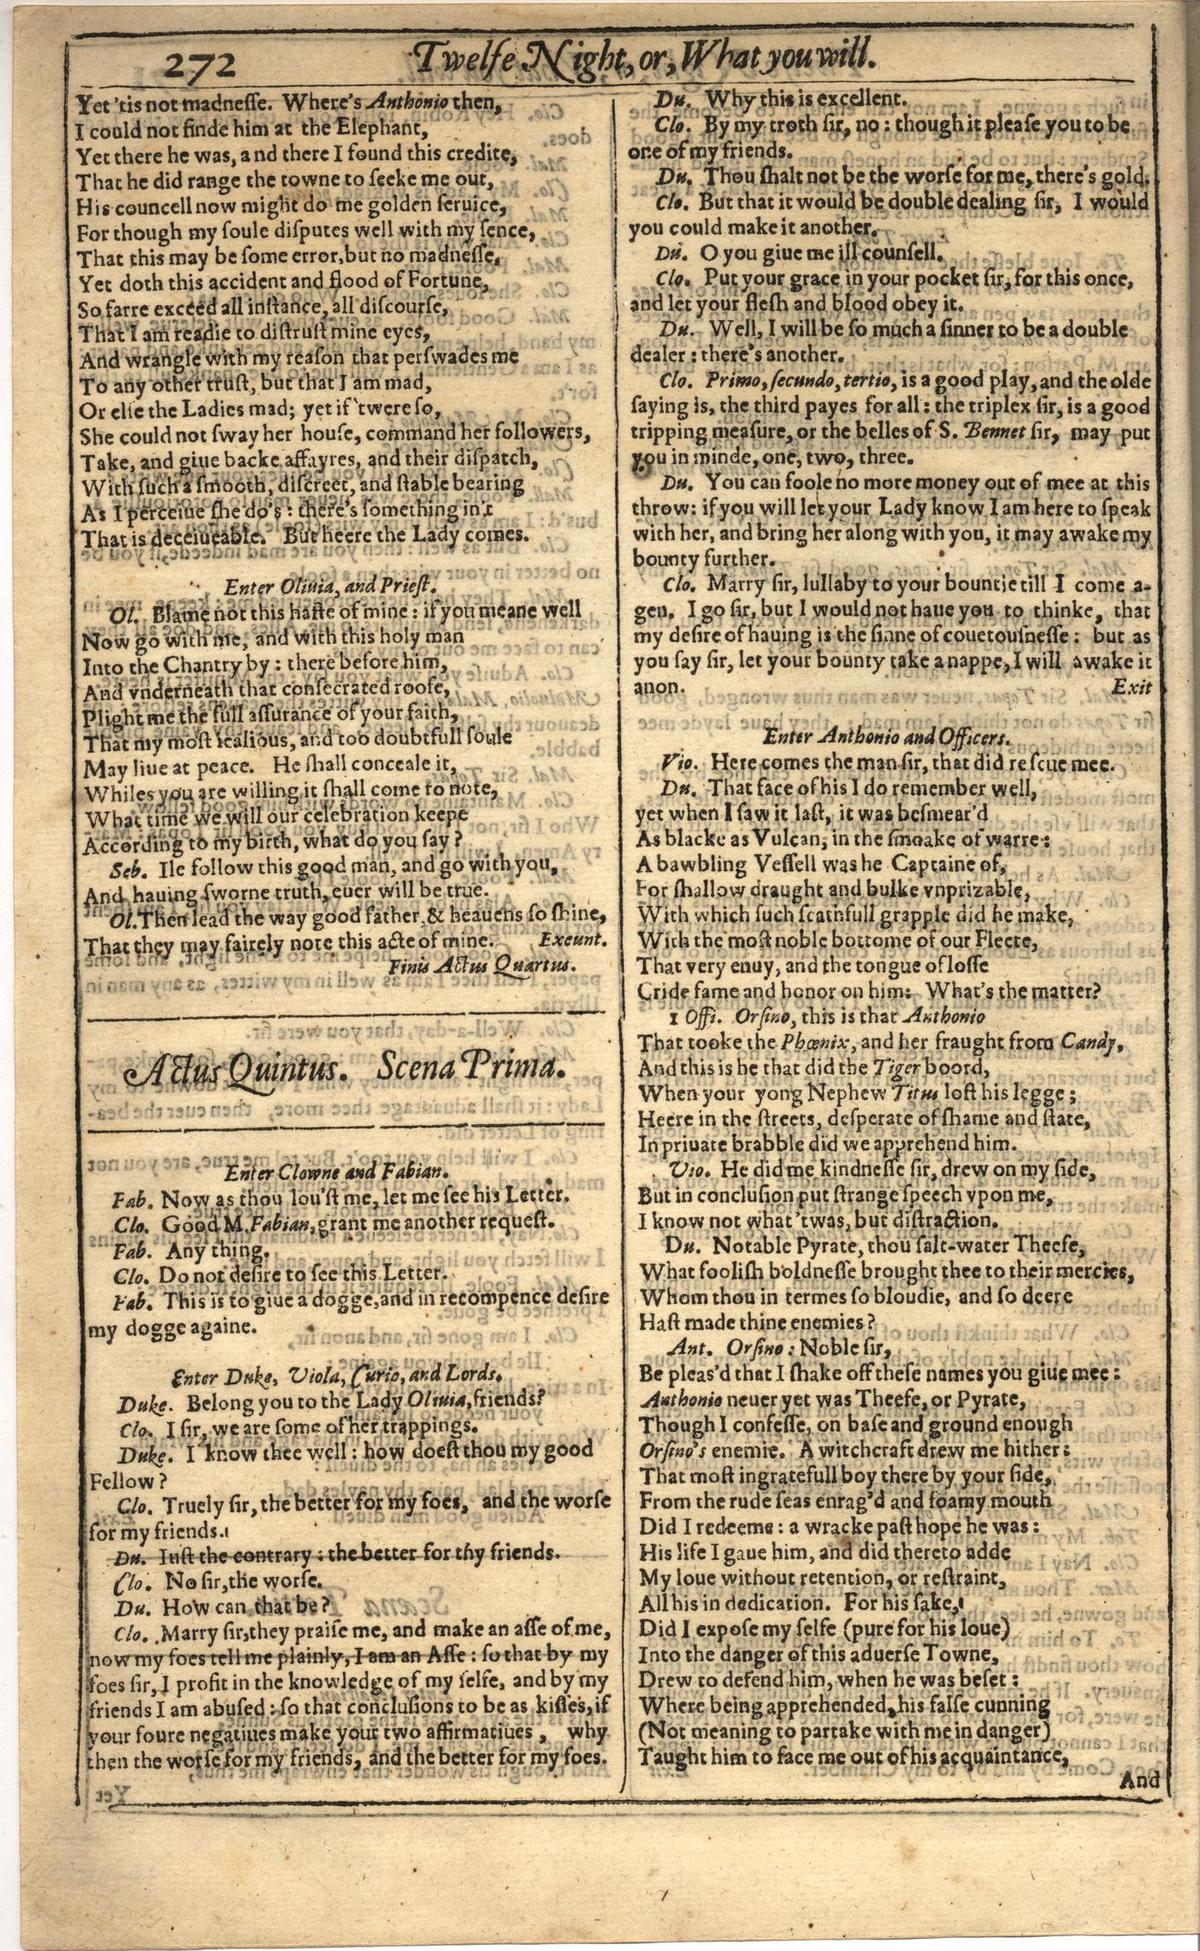 272
Twelfe Night, or, What you will.
Yet 'tis not madnesse. Where's Anthonio then,
I could not finde him at the Elephant,
Yet there he was, and there I found this credite,
That he did range the towne to seeke me out,
His councell now might do me golden seruice,
For though my soule disputes well with my sence,
That this may be some error, but no madnesse,
Yet doth this accident and flood of Fortune,
So farre exceed all instance, all discourse,
That I am readie to distrust mine eyes,
And wrangle with my reason that perswades me
To any other trust, but that I am mad,
Or else the Ladies mad; yet if 'twere so,
She could not sway her house, command her followers,
Take, and giue backe affayres, and their dispatch,
With such a smooth, discreet, and stable bearing
As I perceiue she do's: there's something in't
That is deceiueable. But heere the Lady comes.
Enter Oliuia, and Priest.
Ol. Blame not this haste of mine: if you meane well
Now go with me, and with this holy man
Into the Chantry by: there before him,
And vnderneath that consecrated roofe,
Plight me the full assurance of your faith,
That my most iealious, and too doubtfull soule
May liue at peace. He shall conceale it,
Whiles you are willing it shall come to note,
What time we will our celebration keepe
According to my birth, what do you say?
Seb. Ile follow this good man, and go with you,
And hauing sworne truth, euer will be true.
Ol. Then lead the way good father, & heauens so shine,
That they may fairely note this acte of mine. Exeunt.
Finis Actus Quartus.
Actus Quintus. Scena Prima.
Enter Clowne and Fabian.
Fab. Now as thou lou'st me, let me see his Letter.
Clo. Good M. Fabian, grant me another request.
Fab. Any thing.
Clo. Do not desire to see this Letter.
Fab. This is to giue a dogge, and in recompence desire
my dogge againe.
Enter Duke, Viola, Curio, and Lords.
Duke. Belong you to the Lady Oliuia, friends?
Clo. I sir, we are some of her trappings.
Duke. I know thee well: how doest thou my good
Fellow?
Clo. Truely sir, the better for my foes, and the worse
for my friends.
Du. Iust the contrary: the better for thy friends.
Clo. No sir, the worse.
Du. How can that be?
Clo. Marry sir, they praise me, and make an asse of me,
now my foes tell me plainly, I am an Asse: so that by my
foes sir, I profit in the knowledge of my selfe, and by my
friends I am abused: so that conclusions to be as kisses, if
your foure negatiues make your two affirmatiues, why
then the worse for my friends, and the better for my foes.
Du. Why this is excellent.
Clo. By my troth sir, no: though it please you to be
one of my friends.
Du. Thou shalt not be the worse for me, there's gold.
Clo. But that it would be double dealing sir, I would
you could make it another.
Du. O you giue me ill counsell.
Clo. Put your grace in your pocket sir, for this once,
and let your flesh and blood obey it.
Du. Well, I will be so much a sinner to be a double
dealer: there's another.
Clo. Primo, secundo, tertio, is a good play, and the olde
saying is, the third payes for all: the triplex sir, is a good
tripping measure, or the belles of S. Bennet sir, may put
you in minde, one, two, three.
Du. You can foole no more money out of mee at this
throw: if you will let your Lady know I am here to speak
with her, and bring her along with you, it may awake my
bounty further.
Clo. Marry sir, lullaby to your bountie till I come a-
gen. I go sir, but I would not haue you to thinke, that
my desire of hauing is the sinne of couetousnesse: but as
you say sir, let your bounty take a nappe, I will awake it
anon. Exit
Enter Anthonio and Officers.
Vio. Here comes the man sir, that did rescue mee.
Du. That face of his I do remember well,
yet when I saw it last, it was besmear'd
As blacke as Vulcan, in the smoake of warre:
A bawbling Vessell was he Captaine of,
For shallow draught and bulke vnprizable,
With which such scathfull grapple did he make,
With the most noble bottome of our Fleete,
That very enuy, and the tongue of losse
Cride fame and honor on him: What's the matter?
1 Offi. Orsino, this is that Anthonio
That tooke the Phœnix, and her fraught from Candy,
And this is he that did the Tiger boord,
When your yong Nephew Titus lost his legge;
Heere in the streets, desperate of shame and state,
In priuate brabble did we apprehend him.
Vio. He did me kindnesse sir, drew on my side,
But in conclusion put strange speech vpon me,
I know not what 'twas, but distraction.
Du. Notable Pyrate, thou salt-water Theefe,
What foolish boldnesse brought thee to their mercies,
Whom thou in termes so bloudie, and so deere
Hast made thine enemies?
Ant. Orsino: Noble sir,
Be pleas'd that I shake off these names you giue mee:
Anthonio neuer yet was Theefe, or Pyrate,
Though I confesse, on base and ground enough
Orsino's enemie. A witchcraft drew me hither:
That most ingratefull boy there by your side,
From the rude seas enrag'd and foamy mouth
Did I redeeme: a wracke past hope he was:
His life I gaue him, and did thereto adde
My loue without retention, or restraint,
All his in dedication. For his sake,
Did I expose my selfe (pure for his loue)
Into the danger of this aduerse Towne,
Drew to defend him, when he was beset:
Where being apprehended, his false cunning
(Not meaning to partake with me in danger)
Taught him to face me out of his acquaintance,
And